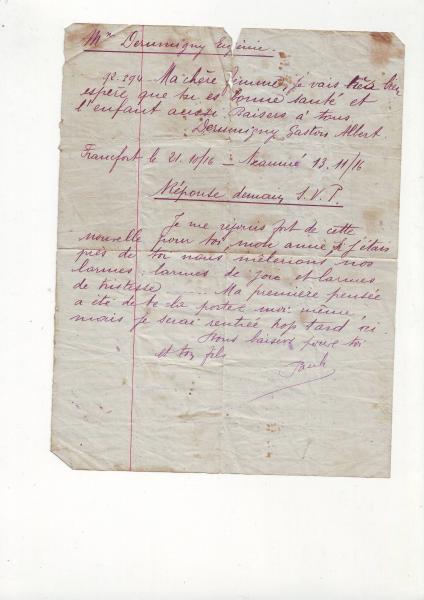 Mme Derumigny Eugénie.
92.294 - Ma chère femme, je vais très bien
espère que tu es bonne santé et
l'enfant aussi. Baisers à tous
Derumigny Gaston Albert
Francfort le 21.10/16 - 13.11/16
Réponse demain S.V.P.
Je me réjouis fort de cette
nouvelle pour toi, mon amie, si j'étais
près de toi nous mêlerions nos
larmes: larmes de joie et larmes
de tristesse ...... Ma première pensée
a été de te la porter moi-même,
mais je serai rentrée trop tard ici.
Bons baisers pour toi
et ton fils